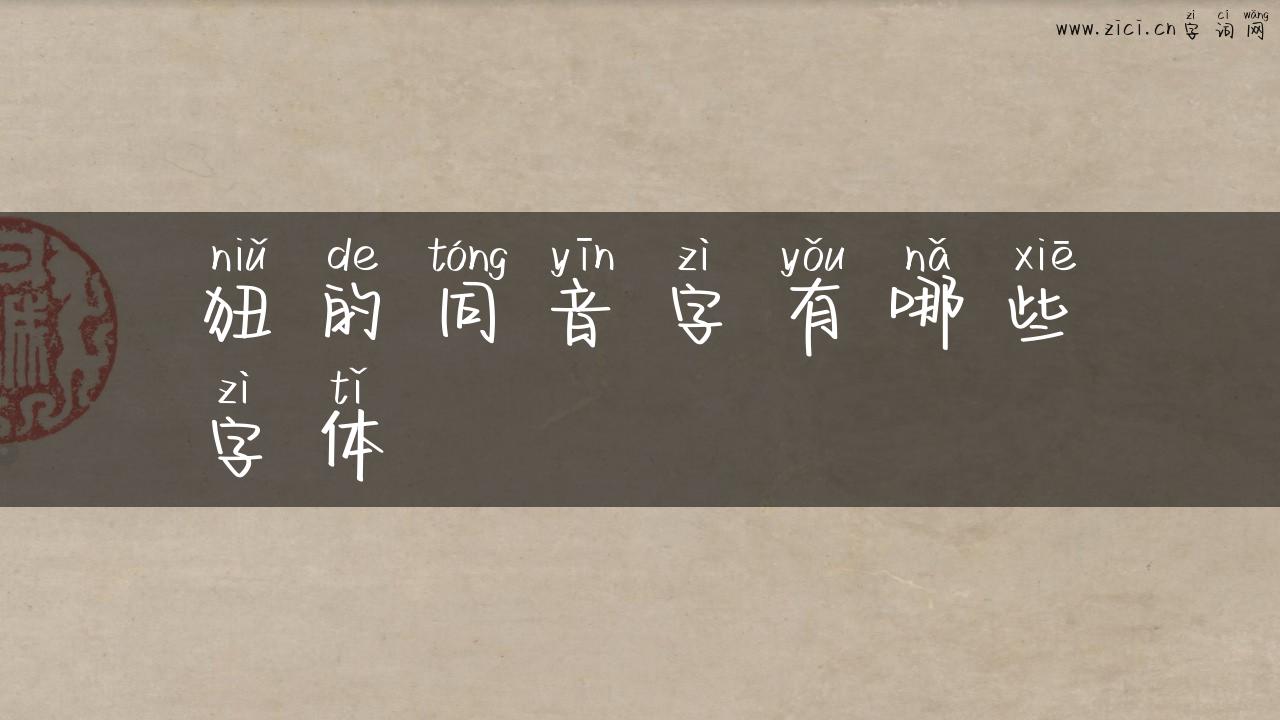 www.zici.cn zì cí wǎng
字词网
niǔ de tóng yīn zì yǒu nǎ xiē
狃的同音字有哪些
zì tǐ
字体